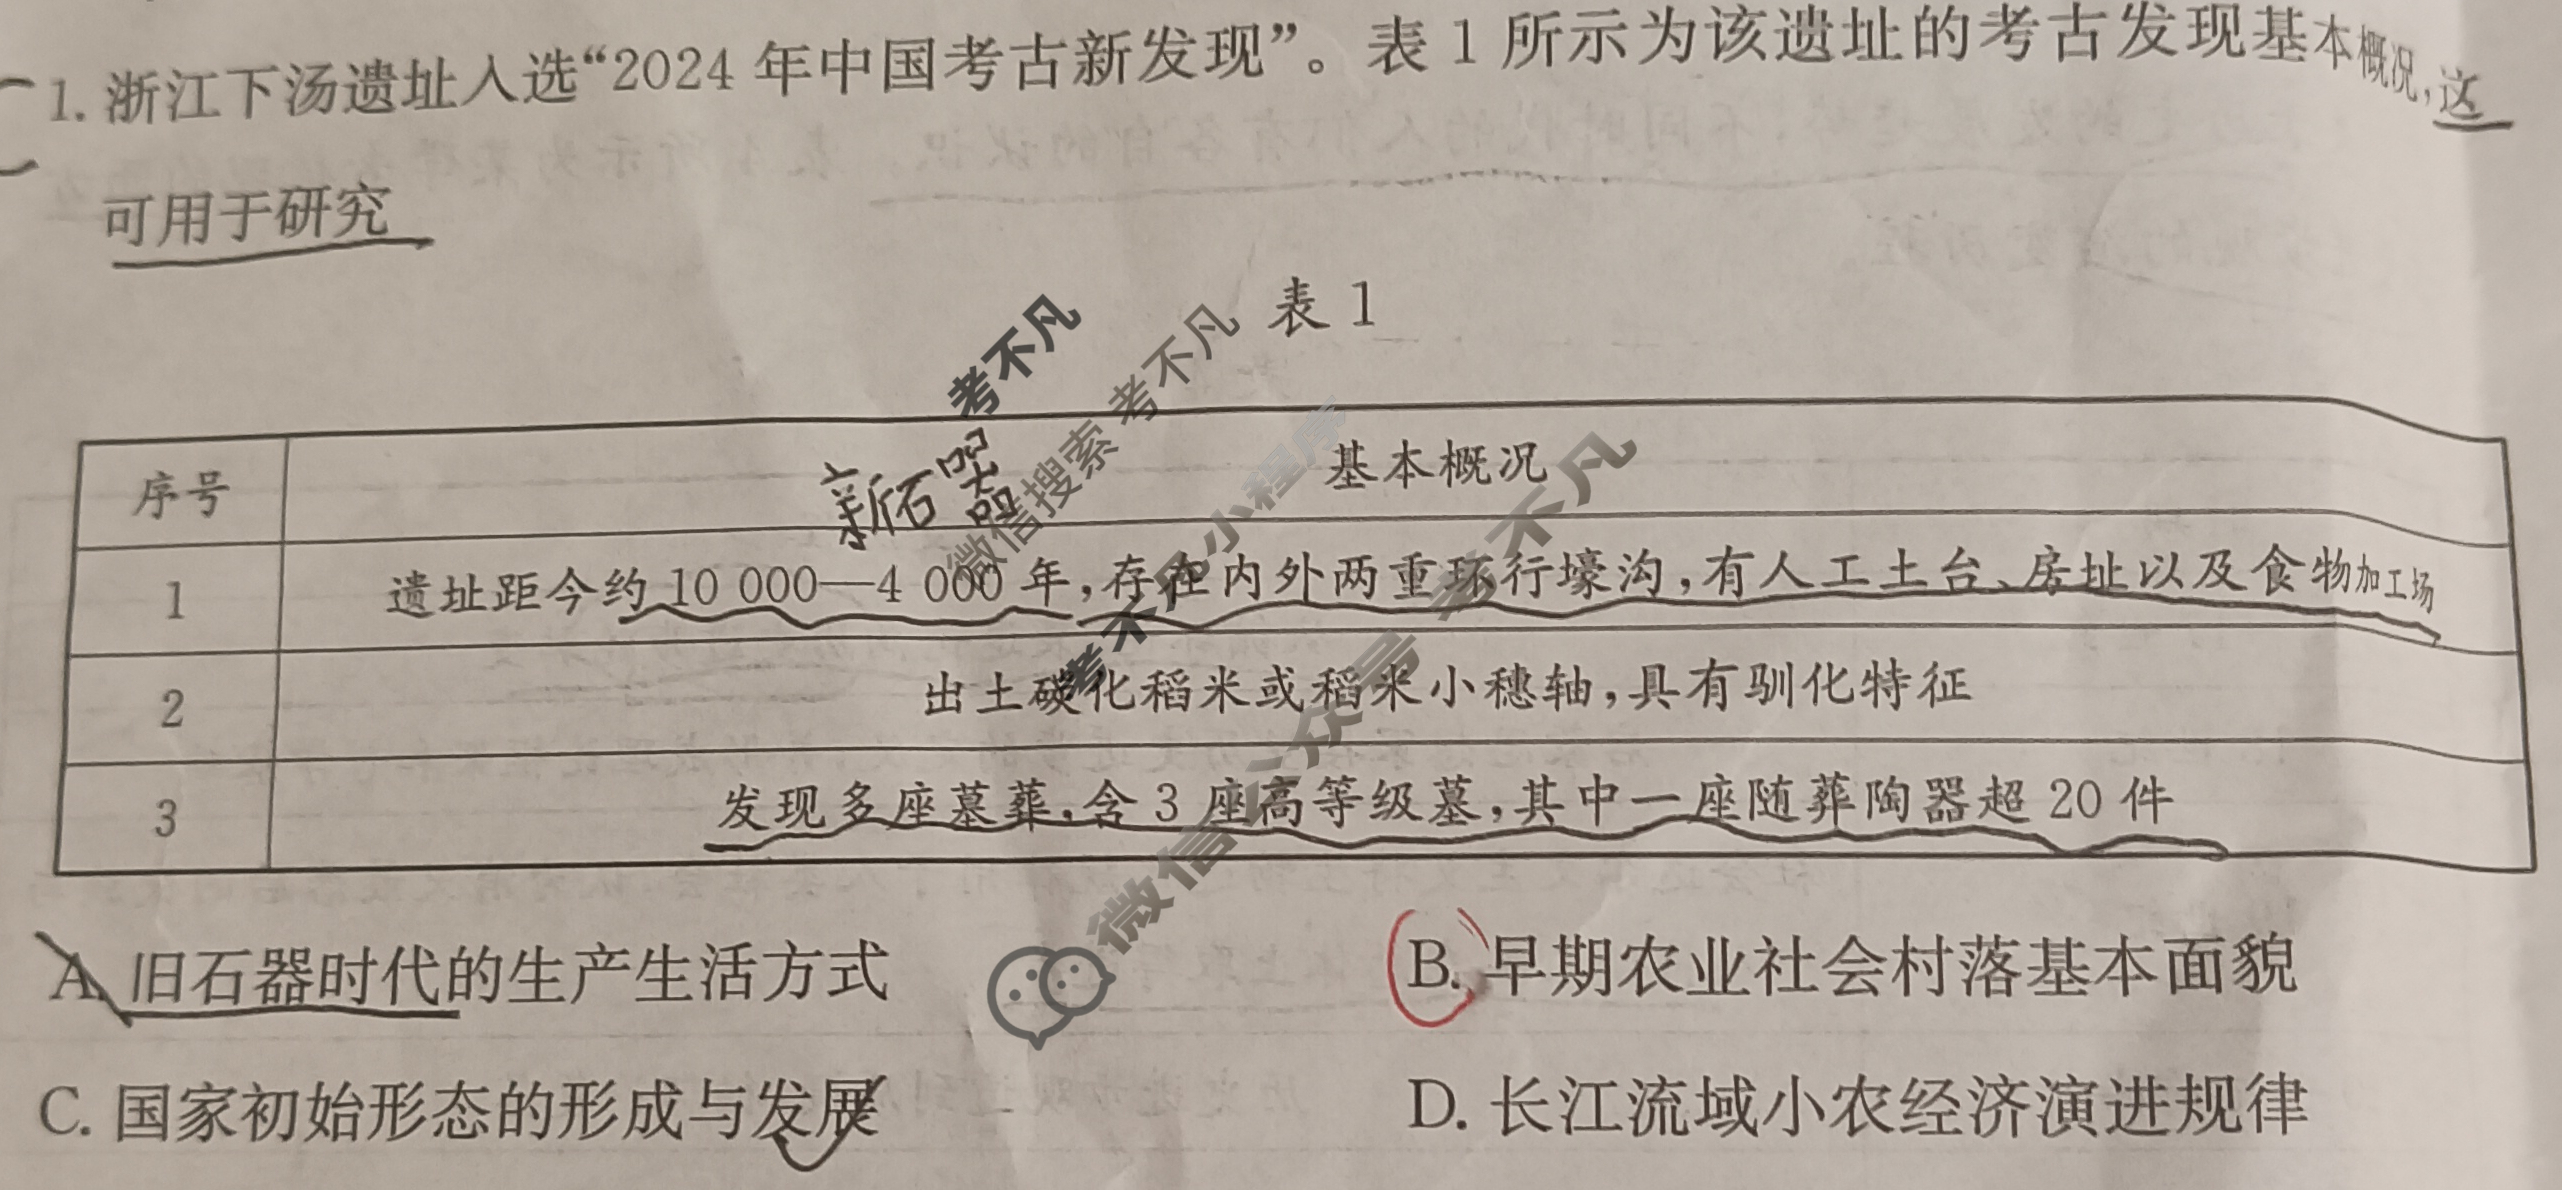 1. 浙江下汤遗址入选“2024 年中国考古新发现”。表 1 所示为该遗址的考古发现基本概况,这
可用于研究
表 1
考不凡
微信搜索 考不凡
考不凡小程序
微信公众号 考不凡
新石器
序号 基本概况
1 遗址距今约 10 000—4 000 年,存在内外两重环行壕沟,有人工土台、房址以及食物加工场
2 出土碳化稻米或稻米小穗轴,具有驯化特征
3 发现多座墓葬,含 3 座高等级墓,其中一座随葬陶器超 20 件
A. 旧石器时代的生产生活方式 B. 早期农业社会村落基本面貌
C. 国家初始形态的形成与发展 D. 长江流域小农经济演进规律